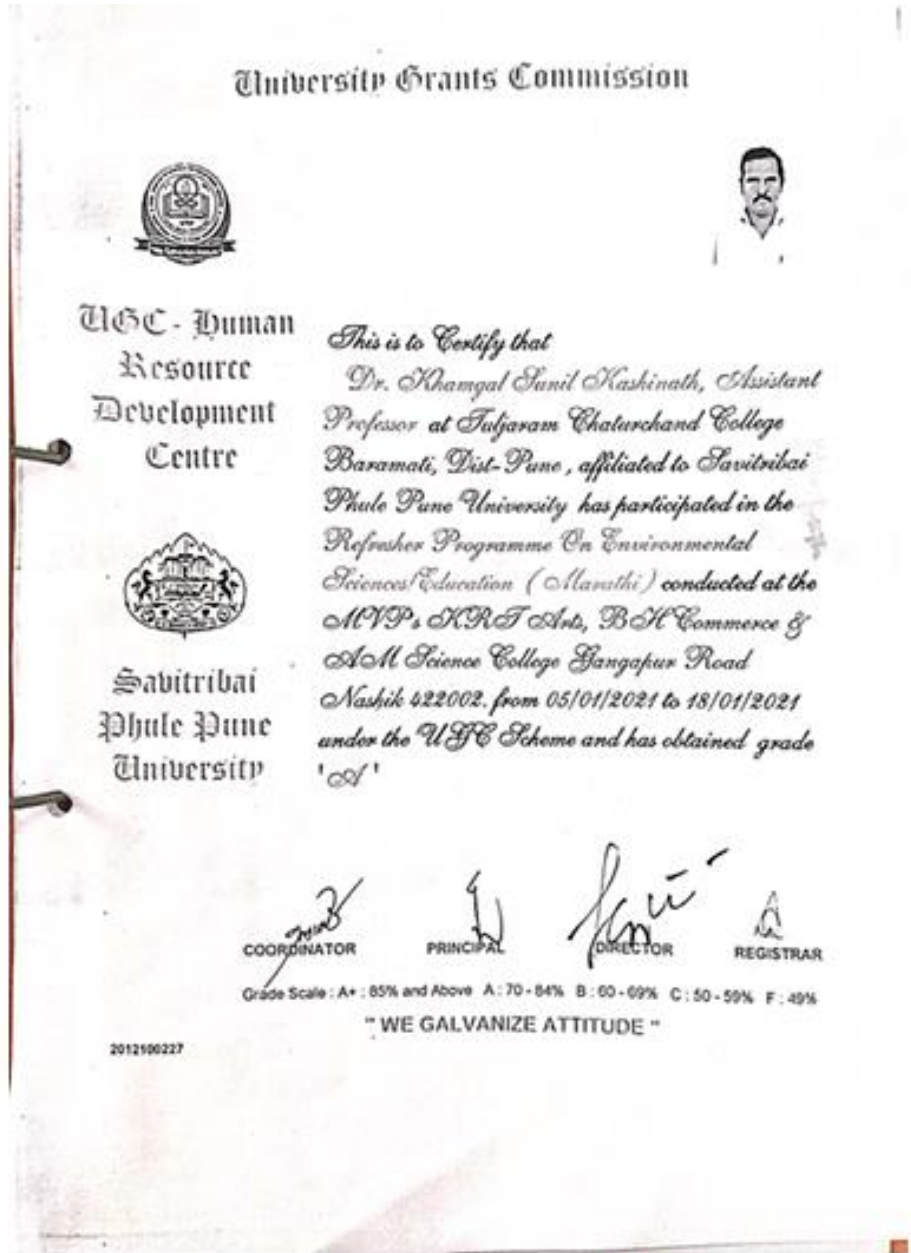 University Grants Commission
UGC - Human
Resource
Development
Centre
Savitribai
Phule Pune
University
This is to Certify that
Dr. Khamgal Sunil Kashinath, Assistant
Professor at Tuljaram Chaturchand College
Baramati, Dist-Pune, affiliated to Savitribai
Phule Pune University has participated in the
Refresher Programme On Environmental
Sciences/Education (Marathi) conducted at the
MVPs KRT Arts, BH Commerce &
AM Science College Gangapur Road
Nashik 422002. from 05/01/2021 to 18/01/2021
under the UGC Scheme and has obtained grade
'A'
COORDINATOR PRINCIPAL DIRECTOR REGISTRAR
Grade Scale : A+ : 85% and Above A : 70 - 84% B : 60 - 69% C : 50 - 59% F : 49%
" WE GALVANIZE ATTITUDE "
2012100227